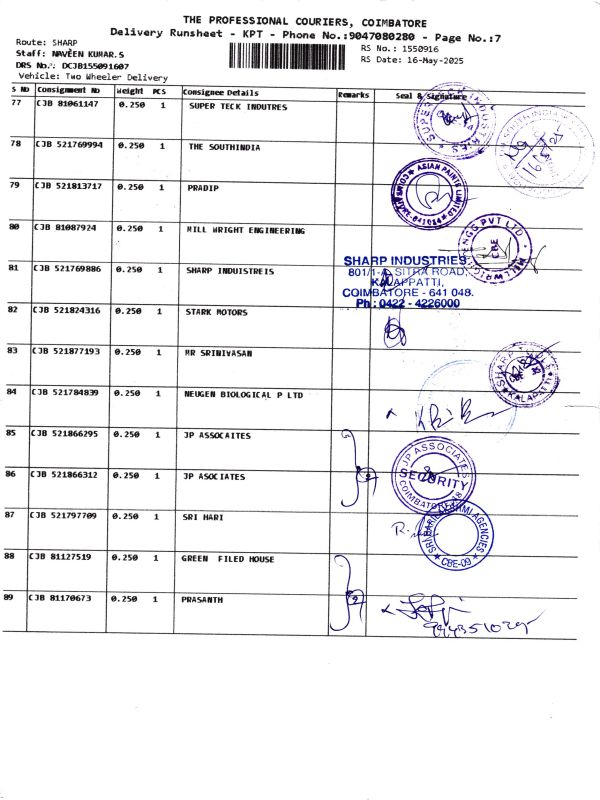 THE PROFESSIONAL COURIERS, COIMBATORE
Delivery Runsheet - KPT - Phone No.:9047080280 - Page No.:7
Route: SHARP
RS No.: 1550916
Staff: NAVEEN KUMAR.S
RS Date: 16-May-2025
DRS No.: DCJB155091607
Vehicle: Two Wheeler Delivery
S NO Consignment No Weight PCS Consignee Details Remarks Seal & Signature
77 CJB 81061147 0.250 1 SUPER TECK INDUTRES
78 CJB 521769994 0.250 1 THE SOUTHINDIA
16/5/25
79 CJB 521813717 0.250 1 PRADIP
ASIAN PAINTS LIMITED
80 CJB 81087924 0.250 1 MILL WRIGHT ENGINEERING
CBE
SHARP INDUSTRIES
801/1-A, SITRA ROAD,
KALAPPATTI,
COIMBATORE - 641 048.
Ph : 0422 - 4226000
81 CJB 521769886 0.250 1 SHARP INDUISTREIS
82 CJB 521824316 0.250 1 STARK MOTORS
83 CJB 521877193 0.250 1 MR SRINIVASAN
KALAPATTI
84 CJB 521784839 0.250 1 NEUGEN BIOLOGICAL P LTD
85 CJB 521866295 0.250 1 JP ASSOCAITES
JP ASSOCIATES
SECURITY
86 CJB 521866312 0.250 1 JP ASOCIATES
2
87 CJB 521797709 0.250 1 SRI HARI
CBE-09
88 CJB 81127519 0.250 1 GREEN FILED HOUSE
89 CJB 81170673 0.250 1 PRASANTH
2